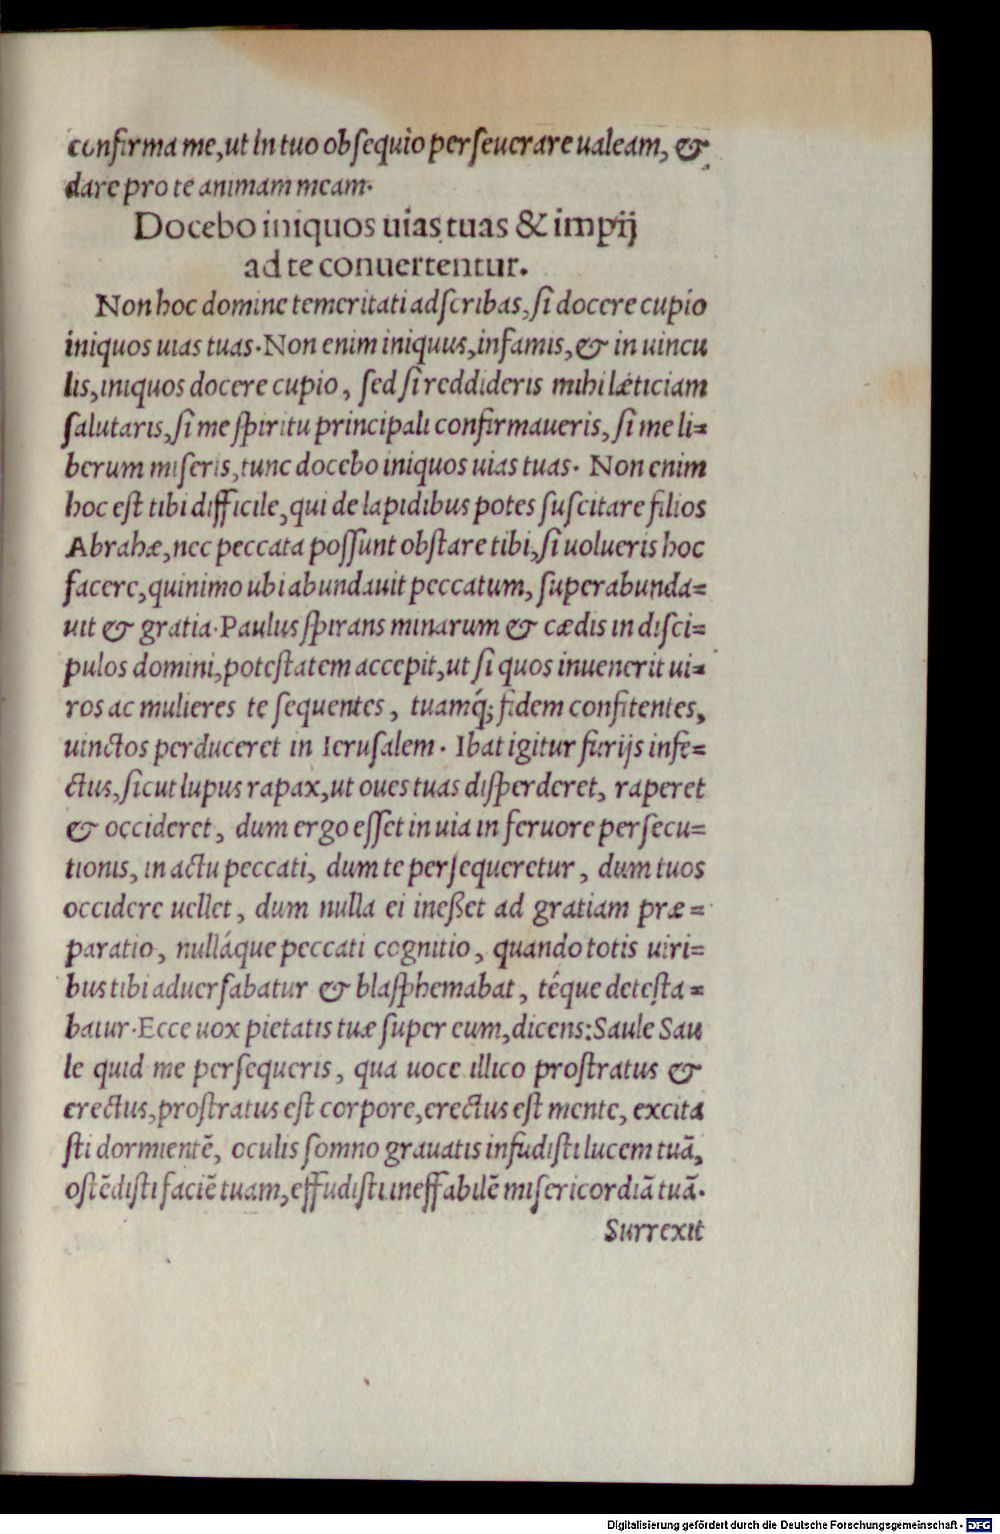 confirma me, ut in tuo obsequio perseuerare ualeam, &
dare pro te animam meam.
Docebo iniquos uias tuas & impij
ad te conuertentur.
Non hoc domine temeritati adscribas, si docere cupio
iniquos uias tuas. Non enim iniquus, infamis, & in uincu
lis, iniquos docere cupio, sed si reddideris mihi læticiam
salutaris, si me spiritu principali confirmaueris, si me li=
berum miseris, tunc docebo iniquos uias tuas. Non enim
hoc est tibi difficile, qui de lapidibus potes suscitare filios
Abrahæ, nec peccata possunt obstare tibi, si uolueris hoc
facere, quinimo ubi abundauit peccatum, superabunda=
uit & gratia. Paulus spirans minarum & cædis in disci=
pulos domini, potestatem accepit, ut si quos inuenerit ui=
ros ac mulieres te sequentes, tuamq́; fidem confitentes,
uinctos perduceret in Ierusalem. Ibat igitur furijs infe=
ctus, sicut lupus rapax, ut oues tuas disperderet, raperet
& occideret, dum ergo esset in uia in feruore persecu=
tionis, in actu peccati, dum te persequeretur, dum tuos
occidere uellet, dum nulla ei ineßet ad gratiam præ=
paratio, nulláque peccati cognitio, quando totis uiri=
bus tibi aduersabatur & blasphemabat, téque detesta=
batur. Ecce uox pietatis tuæ super eum, dicens: Saule Sau
le quid me persequeris, qua uoce illico prostratus &
erectus, prostratus est corpore, erectus est mente, excita
sti dormientē, oculis somno grauatis infudisti lucem tuā,
ostēdisti faciē tuam, effudisti ineffabilē misericordiā tuā.
Surrexit
Digitalisierung gefördert durch die Deutsche Forschungsgemeinschaft - DFG